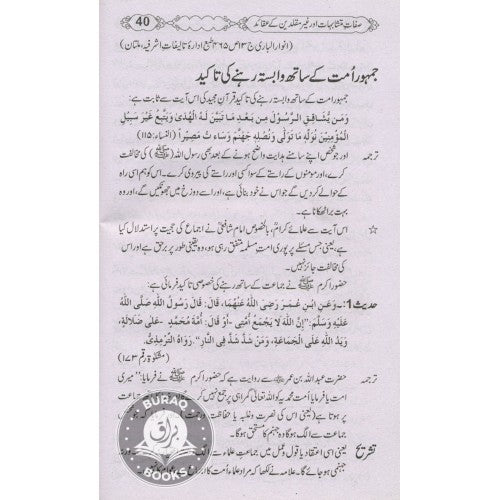 40 صفاتِ متشابہات اور غیر مقلدین کے عقائد
(انوار الباری ج ۱۳ ص ۳۶۵ طبع ادارۂ تالیفات اشرفیہ، ملتان)
جمہور اُمت کے ساتھ وابستہ رہنے کی تاکید
جمہور اُمت کے ساتھ وابستہ رہنے کی تاکید قرآنِ مجید کی اس آیت سے ثابت ہے:
وَمَن يُشَاقِقِ الرَّسُوْلَ مِن بَعْدِ مَا تَبَيَّنَ لَهُ الْهُدٰى وَيَتَّبِعْ غَيْرَ سَبِيْلِ
الْمُؤْمِنِيْنَ نُوَلِّهٖ مَا تَوَلّٰى وَنُصْلِهٖ جَهَنَّمَ وَسَآءَتْ مَصِيْراً (النساء: ۱۱۵)
ترجمہ اور جو شخص اپنے سامنے ہدایت واضح ہونے کے بعد بھی رسول اللہ (ﷺ) کی مخالفت
کرے، اور مومنوں کے راستے کے سوا کسی اور راستے کی پیروی کرے۔ اس کو ہم اسی راہ
کے حوالے کردیں گے جو اس نے خود اپنائی ہے، اور اسے دوزخ میں جھونکیں گے، اور وہ
بہت برا ٹھکانا ہے۔
☆ اس آیت سے علمائے کرامؒ، بالخصوص امام شافعیؒ نے اجماع کی حجیت پر استدلال کیا
ہے، یعنی جس مسئلے پر پوری اُمتِ مسلمہ متفق رہی ہو، وہ یقینی طور پر برحق ہے اور اس
کی مخالفت جائز نہیں۔
حضورِ اکرم ﷺ نے جماعت کے ساتھ رہنے کی خصوصی تاکید فرمائی ہے:
حدیث 1: وَعَنِ ابْنِ عُمَرَ رَضِيَ اللّٰهُ عَنْهُمَا، قَالَ: قَالَ رَسُوْلُ اللّٰهِ صَلَّى اللّٰهُ
عَلَيْهِ وَسَلَّمَ: "إِنَّ اللّٰهَ لَا يَجْمَعُ أُمَّتِيْ -أَوْ قَالَ: أُمَّةَ مُحَمَّدٍ- عَلٰى ضَلَالَةٍ،
وَيَدُ اللّٰهِ عَلَى الْجَمَاعَةِ، وَمَنْ شَذَّ شُذَّ فِي النَّارِ". رَوَاهُ التِّرْمِذِيُّ.
(مشکوٰۃ رقم ۱۷۳)
ترجمہ حضرت عبداللہ بن عمرؓ سے روایت ہے کہ حضورِ اکرم ﷺ نے فرمایا: "میری
اُمت یا فرمایا اُمتِ محمدیہ کو اللہ تعالیٰ گمراہی پر جمع نہیں
پر ہوتا ہے (یعنی اس کی نصرت وغلبہ یا حفاظت) کہ جو شخص
جماعت سے الگ ہوگا وہ جہنم کا مستحق ہوگا۔
تشریح یعنی اسی اعتقاد یا قول و عمل میں جماعت سے الگ
جہنمی ہو جائے گا۔ علامہ نے لکھا کہ مراد علماء اُمت کا
BURAQ
براق
BOOKS